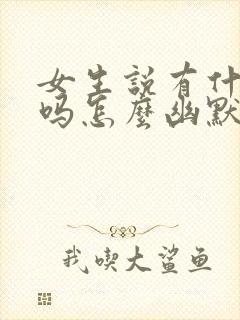 女生説有什
嗎怎麼幽默
我喫大鯊鱼